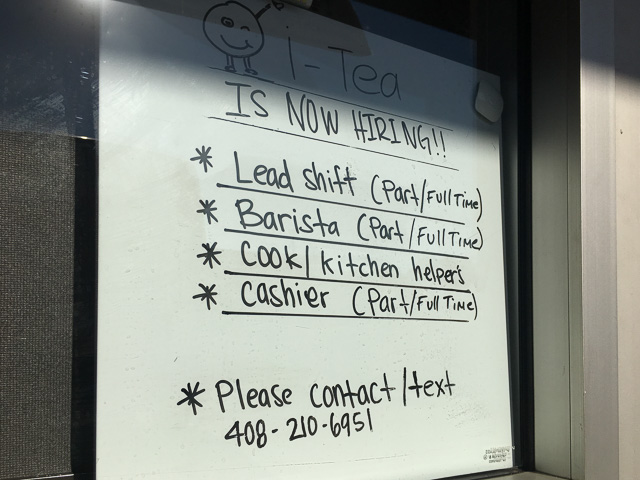 i-Tea
IS NOW HIRING!!
* Lead shift (Part/Full Time)
* Barista (Part/Full Time)
* Cook/kitchen helpers
* Cashier (Part/Full Time)
* Please contact/text
408-210-6951